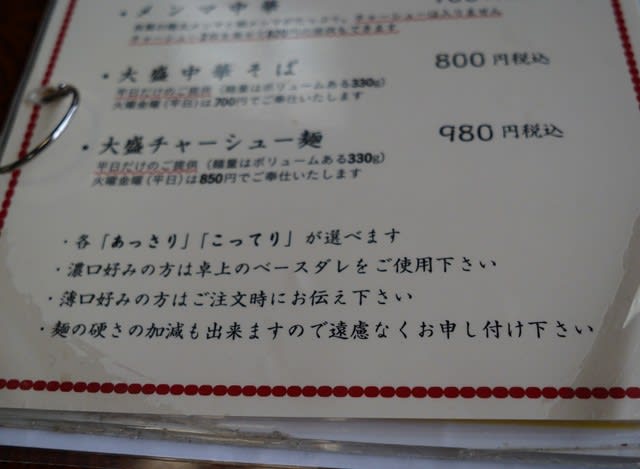 ・メンマ中華
チャーシューは入りません
・大盛中華そば 800円税込
平日だけのご提供（麺量はボリュームある330g）
火曜金曜（平日）は700円でご奉仕いたします
・大盛チャーシュー麺 980円税込
平日だけのご提供（麺量はボリュームある330g）
火曜金曜（平日）は850円でご奉仕いたします
・各「あっさり」「こってり」が選べます
・濃口好みの方は卓上のベースダレをご使用下さい
・薄口好みの方はご注文時にお伝え下さい
・麺の硬さの加減も出来ますので遠慮なくお申し付け下さい